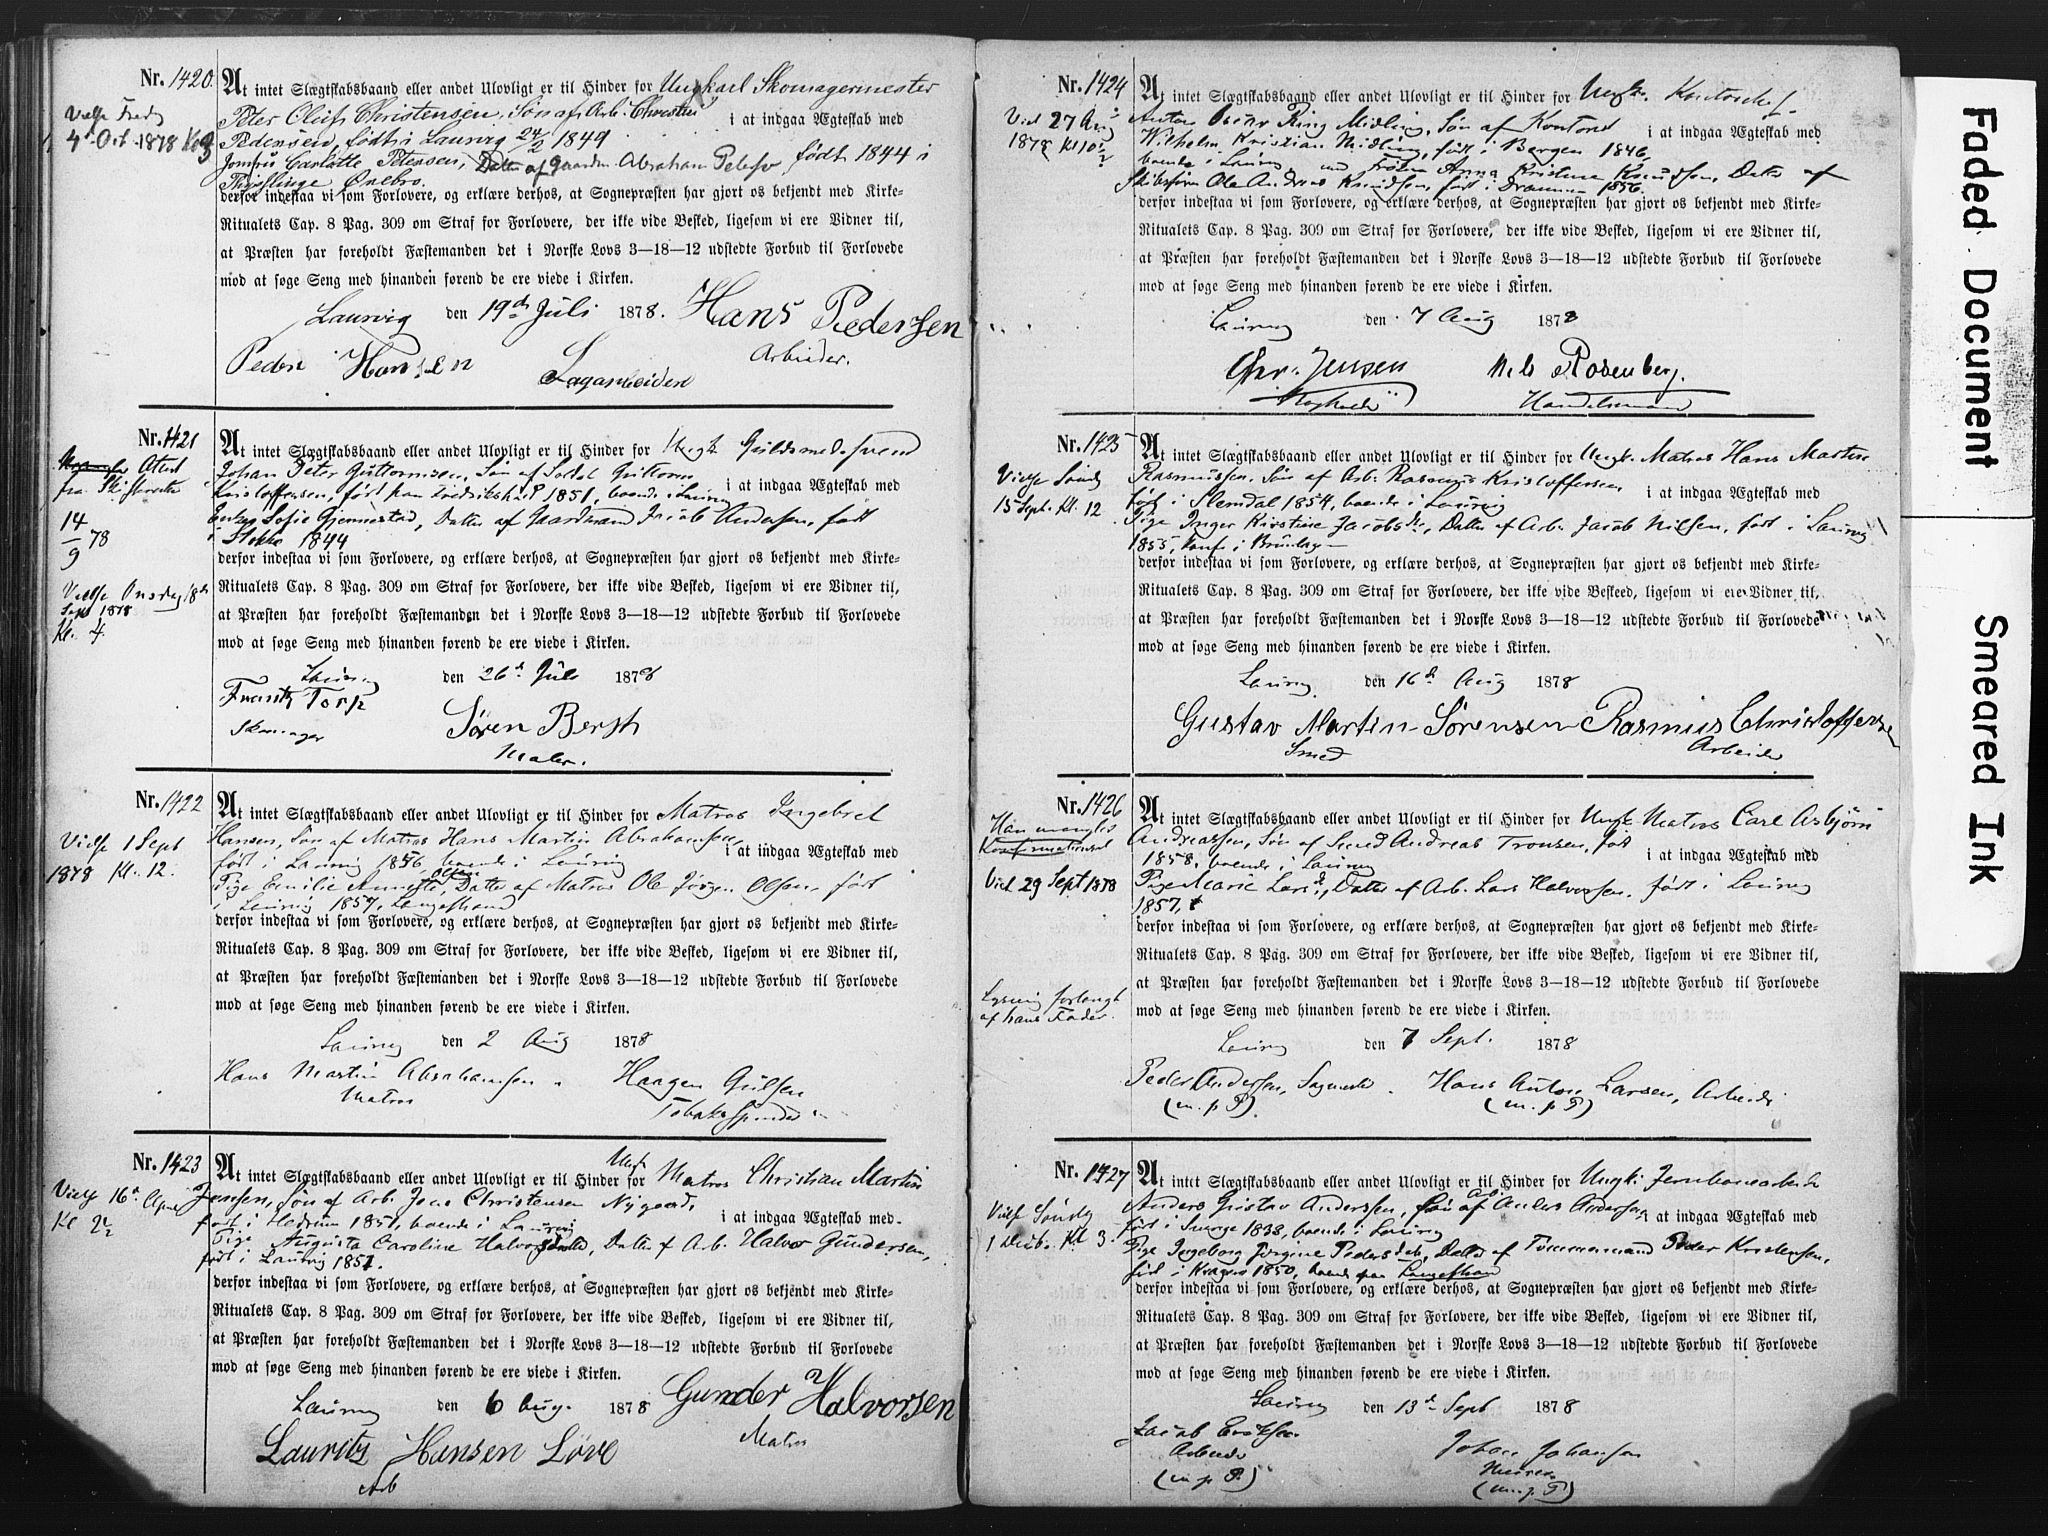 Nr. 1420.
At intet Slægtskabsbaand eller andet Ulovligt er til Hinder for Ungkarl Skomagermester
Peter Oluf Christensen, Søn af Arb. Christen
i at indgaa Ægteskab med
Pedersen, født i Laurvig 24/2 1849
Jomfru Carlotte Petersen, Datter af Gaardm. Abraham født 1844 i
Ørebro.
Vielse Fredg
4de Oct. 1878 Kl 3
derfor indestaa vi som Forlovere, og erklære derhos, at Sognepræsten har gjort os bekjendt med Kirke-
Ritualets Cap. 8 Pag. 309 om Straf for Forlovere, der ikke vide Besked, ligesom vi ere Vidner til,
at Præsten har foreholdt Fæstemanden det i Norske Lovs 3—18—12 udstedte Forbud til Forlovede
mod at søge Seng med hinanden førend de ere viede i Kirken.
Laurvig den 19de Juli 1878. Hans Pedersen
Arbieder.
Peder Hansen
Sagarbeider
Nr. 1421
At intet Slægtskabsbaand eller andet Ulovligt er til Hinder for Ungk Guldsmedsvend
Johan Peter Guttormsen, Søn af Soldat Guttorm
Kristoffersen, født paa Fredrikshald 1851, boende i Laurvig
i at indgaa Ægteskab med
Enke Sofie Gjennestad, Datter af Gaardmand Jacob Andersen, født
i Stokke 1844
Attest
fra
14/9 78
Vielse Onsdag 18de
Sept 1878
Kl. 4.
derfor indestaa vi som Forlovere, og erklære derhos, at Sognepræsten har gjort os bekjendt med Kirke-
Ritualets Cap. 8 Pag. 309 om Straf for Forlovere, der ikke vide Besked, ligesom vi ere Vidner til,
at Præsten har foreholdt Fæstemanden det i Norske Lovs 3—18—12 udstedte Forbud til Forlovede
mod at søge Seng med hinanden førend de ere viede i Kirken.
Laurvig den 26de Juli 1878
Frantz Torp
Skomager
Søren Bersth
Maler.
Nr. 1422
At intet Slægtskabsbaand eller andet Ulovligt er til Hinder for Matros Ingebret
Hansen, Søn af Matros Hans Martin Abrahamsen,
i at indgaa Ægteskab med
født i Laurvig 1856, boende i Laurvig
Olsen
Pige Emilie Annette, Datter af Matros Ole Jörgen Olsen, født
i Laurvig 1857, Langestrand
Vielse 1 Sept
1878 Kl. 12.
derfor indestaa vi som Forlovere, og erklære derhos, at Sognepræsten har gjort os bekjendt med Kirke-
Ritualets Cap. 8 Pag. 309 om Straf for Forlovere, der ikke vide Besked, ligesom vi ere Vidner til,
at Præsten har foreholdt Fæstemanden det i Norske Lovs 3—18—12 udstedte Forbud til Forlovede
mod at søge Seng med hinanden førend de ere viede i Kirken.
Laurvig den 2 Aug 1878
Hans Martin Abrahamsen
Matros
Haagen Gulsen
Tobakspinder
Nr. 1423
At intet Slægtskabsbaand eller andet Ulovligt er til Hinder for Ungk Matros Christian Martin
Jensen, Søn af Arb. Jens Christensen Nygaard,
født i Hedrum 1851, boende i Laurvig
i at indgaa Ægteskab med
Pige Augusta Caroline Halvorsdatter, Datter af Arb. Halvor Gundersen,
født i Laurvig 1851.
Vielse 16de
Kl 2½
derfor indestaa vi som Forlovere, og erklære derhos, at Sognepræsten har gjort os bekjendt med Kirke-
Ritualets Cap. 8 Pag. 309 om Straf for Forlovere, der ikke vide Besked, ligesom vi ere Vidner til,
at Præsten har foreholdt Fæstemanden det i Norske Lovs 3—18—12 udstedte Forbud til Forlovede
mod at søge Seng med hinanden førend de ere viede i Kirken.
Laurvig den 6 Aug. 1878 Gunder Halvorsen
Matros
Lauritz Hansen Löve
Arb
Nr. 1424
At intet Slægtskabsbaand eller andet Ulovligt er til Hinder for Ungk. Kontorchef
Anton Oscar Ring Midling, Søn af Kontorist
i at indgaa Ægteskab med
Wilhelm Kristian Midling, født i Bergen 1846,
boende i Laurvig med Frøken Anna Kristine Knudsen, Datter af
Skibsfører Ole Andreas Knudsen, født i Drammen 1856.
Vied 27 Aug
1878 Kl 10½
derfor indestaa vi som Forlovere, og erklære derhos, at Sognepræsten har gjort os bekjendt med Kirke-
Ritualets Cap. 8 Pag. 309 om Straf for Forlovere, der ikke vide Besked, ligesom vi ere Vidner til,
at Præsten har foreholdt Fæstemanden det i Norske Lovs 3—18—12 udstedte Forbud til Forlovede
mod at søge Seng med hinanden førend de ere viede i Kirken.
Laurvig den 7 Aug 1878
Chr. Jensen
Nils Rosenberg.
Handelsmand
Nr. 1425
At intet Slægtskabsbaand eller andet Ulovligt er til Hinder for Ungk. Matros Hans Martin
Rasmussen, Søn af Arb. Rasmus Kristoffersen
i at indgaa Ægteskab med
født i Slemdal 1854, boende i Laurvig
Pige Inger Kirstine Jacobsdtr, Datter af Arb. Jacob Nilsen, født i Laurvig
1855, konf. i Brunla
Vielse Søndg
15 Sept. Kl. 12
derfor indestaa vi som Forlovere, og erklære derhos, at Sognepræsten har gjort os bekjendt med Kirke-
Ritualets Cap. 8 Pag. 309 om Straf for Forlovere, der ikke vide Beskeed, ligesom vi ere Vidner til,
at Præsten har foreholdt Fæstemanden det i Norske Lovs 3—18—12 udstedte Forbud til Forlovede
mod at søge Seng med hinanden førend de ere viede i Kirken.
Laurvig den 16de Aug 1878
Gustav Martin Sørensen
Smed
Rasmus Christoffersen
Arbeider
Nr. 1426
At intet Slægtskabsbaand eller andet Ulovligt er til Hinder for Ungk Matros Carl Asbjørn
Andreassen, Søn af Smed Andreas Tronsen, født
i at indgaa Ægteskab med
1858, boende i Laurvig
Pige Marie Larsd, Datter af Arb. Lars Halvorsen, født i Laurvig
1857,
Han mangler
Konfirmationsat
Vied 29 Sept 1878
Lysning forlangt
af hans Fader.
derfor indestaa vi som Forlovere, og erklære derhos, at Sognepræsten har gjort os bekjendt med Kirke-
Ritualets Cap. 8 Pag. 309 om Straf for Forlovere, der ikke vide Besked, ligesom vi ere Vidner til,
at Præsten har foreholdt Fæstemanden det i Norske Lovs 3—18—12 udstedte Forbud til Forlovede
mod at søge Seng med hinanden førend de ere viede i Kirken.
Laurvig den 7 Sept. 1878
Peder Andersen, Sagmester. Hans Anton Larsen, Arbeider
(m. p. P.) (m. p. P)
Nr. 1427
At intet Slægtskabsbaand eller andet Ulovligt er til Hinder for Ungk. Jernbanearbeider
Anders Gustav Anderssen, Søn af Arb. Anders Andersen
i at indgaa Ægteskab med
født i Sverige 1838, boende i Laurvig
Pige Ingeborg Jörgine Pedersdatt, Datter af Tømmermand Peder Kristensen,
født i Kragerø 1850, boende paa Langestrand
Vielse Søndg
1 Decbr. Kl 3.
derfor indestaa vi som Forlovere, og erklære derhos, at Sognepræsten har gjort os bekjendt med Kirke-
Ritualets Cap. 8 Pag. 309 om Straf for Forlovere, der ikke vide Besked, ligesom vi ere Vidner til,
at Præsten har foreholdt Fæstemanden det i Norske Lovs 3—18—12 udstedte Forbud til Forlovede
mod at søge Seng med hinanden førend de ere viede i Kirken.
Laurvig den 13de Sept 1878
Jacob Eriksen
Arbeider
(m. p. P.)
Johan Johansen
Murer
(m. p. P.)
Faded Document
Smeared Ink